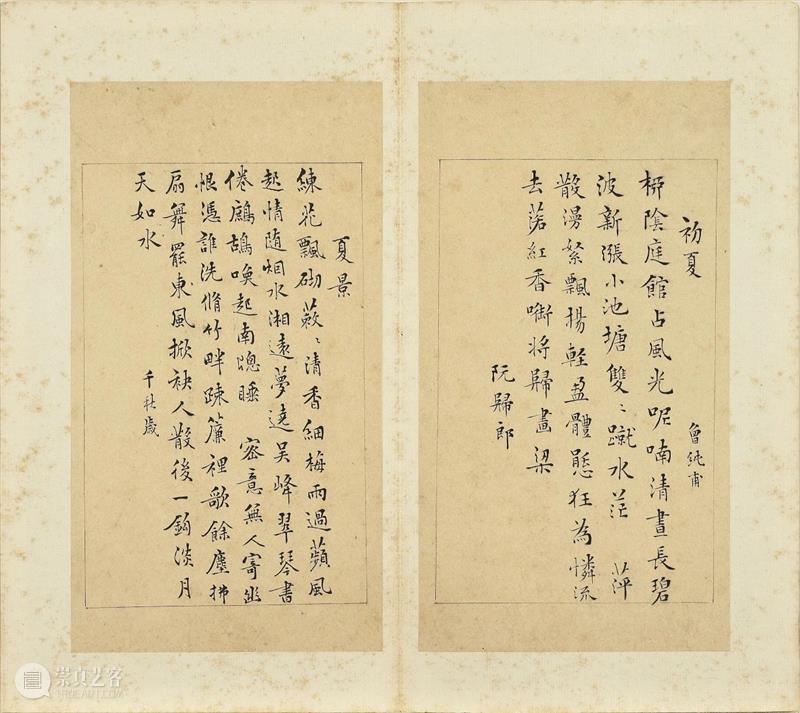 初夏
曾純甫
栁陰庭館占風光呢喃清晝長碧
波新漲小池塘雙〻蹴水茫 萍
散漫絮飄揚輕盈體態狂為憐流
去落紅香啣將歸畫梁
阮歸郎
夏景
練花飄砌蔌〻清香細梅雨過蘋風
起情随烟水湘遠夢遶吳峰翠琴書
倦鷓鴣喚起南窻睡 密意無人寄幽
恨憑誰洗脩竹畔疎簾裡歌餘塵拂
扇舞罷東風掀袂人散後一鈎淡月
天如水
千秋歲
崇真艺客
TRUEART.COM